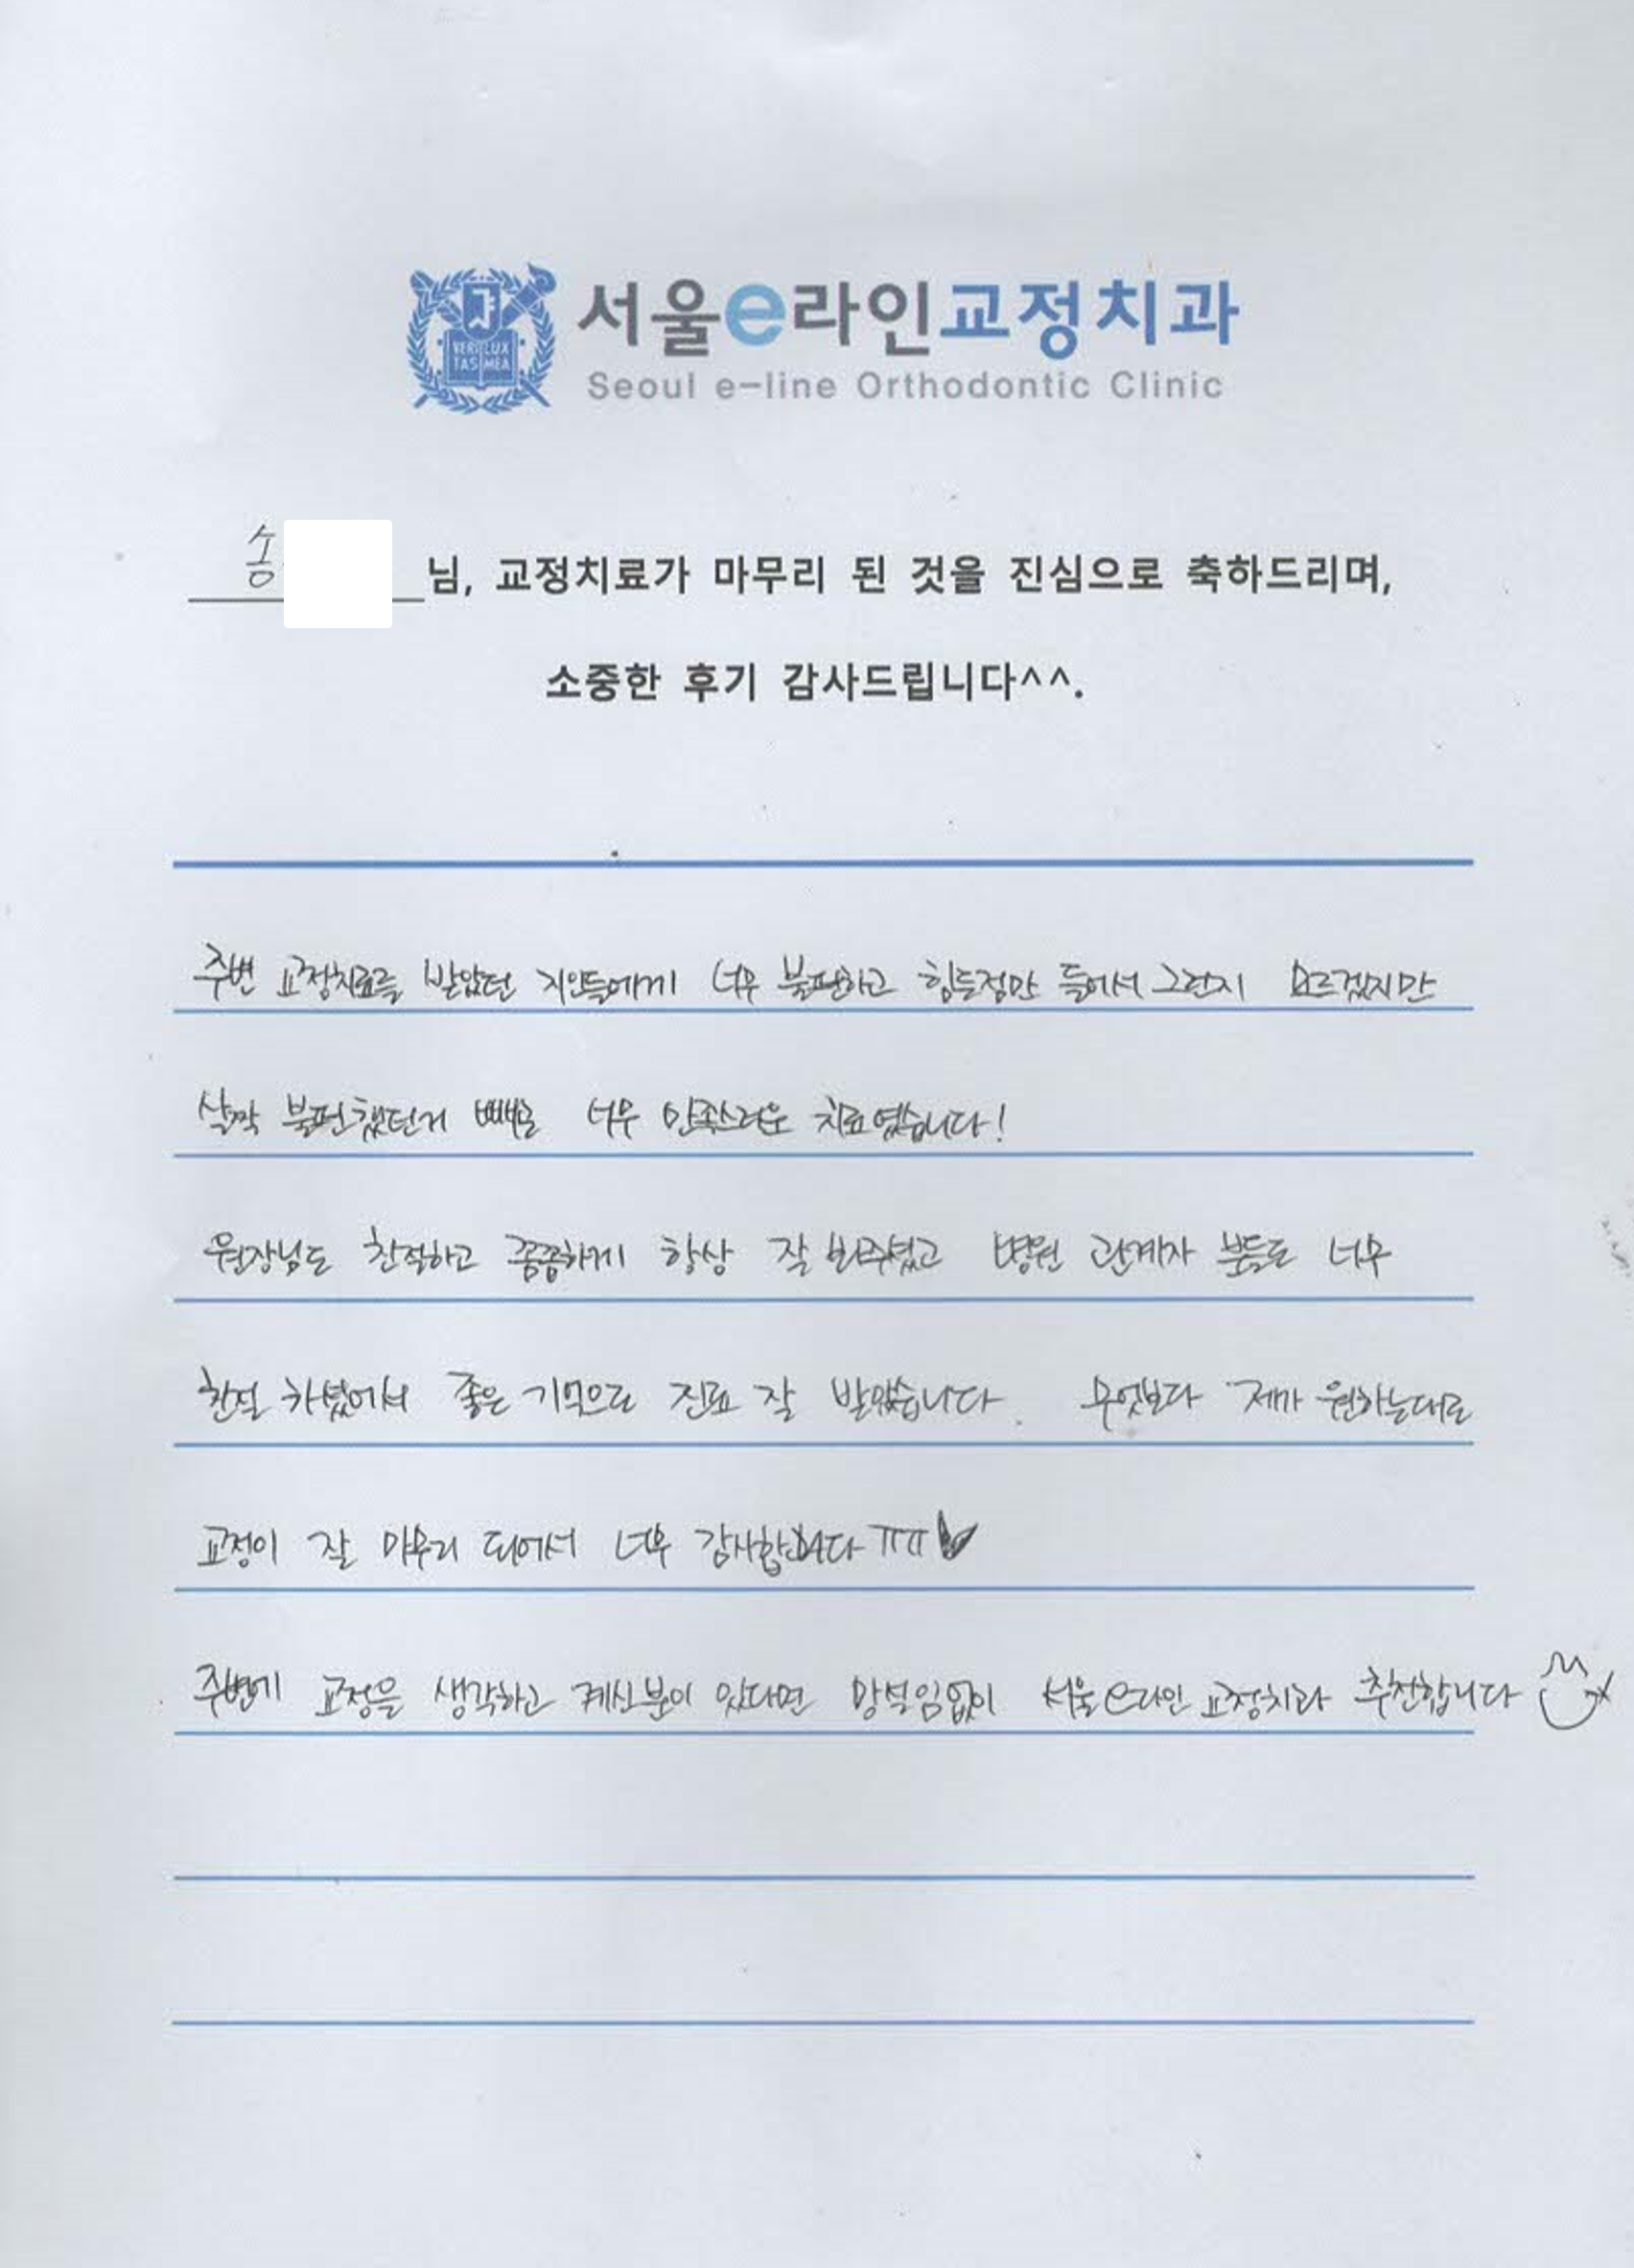 서울e라인교정치과
Seoul e-line Orthodontic Clinic
VERI LUX
TAS MEA
송 님, 교정치료가 마무리 된 것을 진심으로 축하드리며,
소중한 후기 감사드립니다^^.
주변 교정치료를 받았던 지인들에게 너무 불편하고 힘든점만 들어서 그런지 모르겠지만
살짝 불편했던거 빼곤 너무 만족스러운 치료였습니다!
원장님도 친절하고 꼼꼼하게 항상 잘 봐주셨고 병원 관계자 분들도 너무
친절 하셨어서 좋은 기억으로 진료 잘 받았습니다. 무엇보다 제가 원하는대로
교정이 잘 마무리 되어서 너무 감사합니다 ㅠㅠ♥
주변에 교정을 생각하고 계신분이 있다면 망설임없이 서울e라인 교정치과 추천합니다